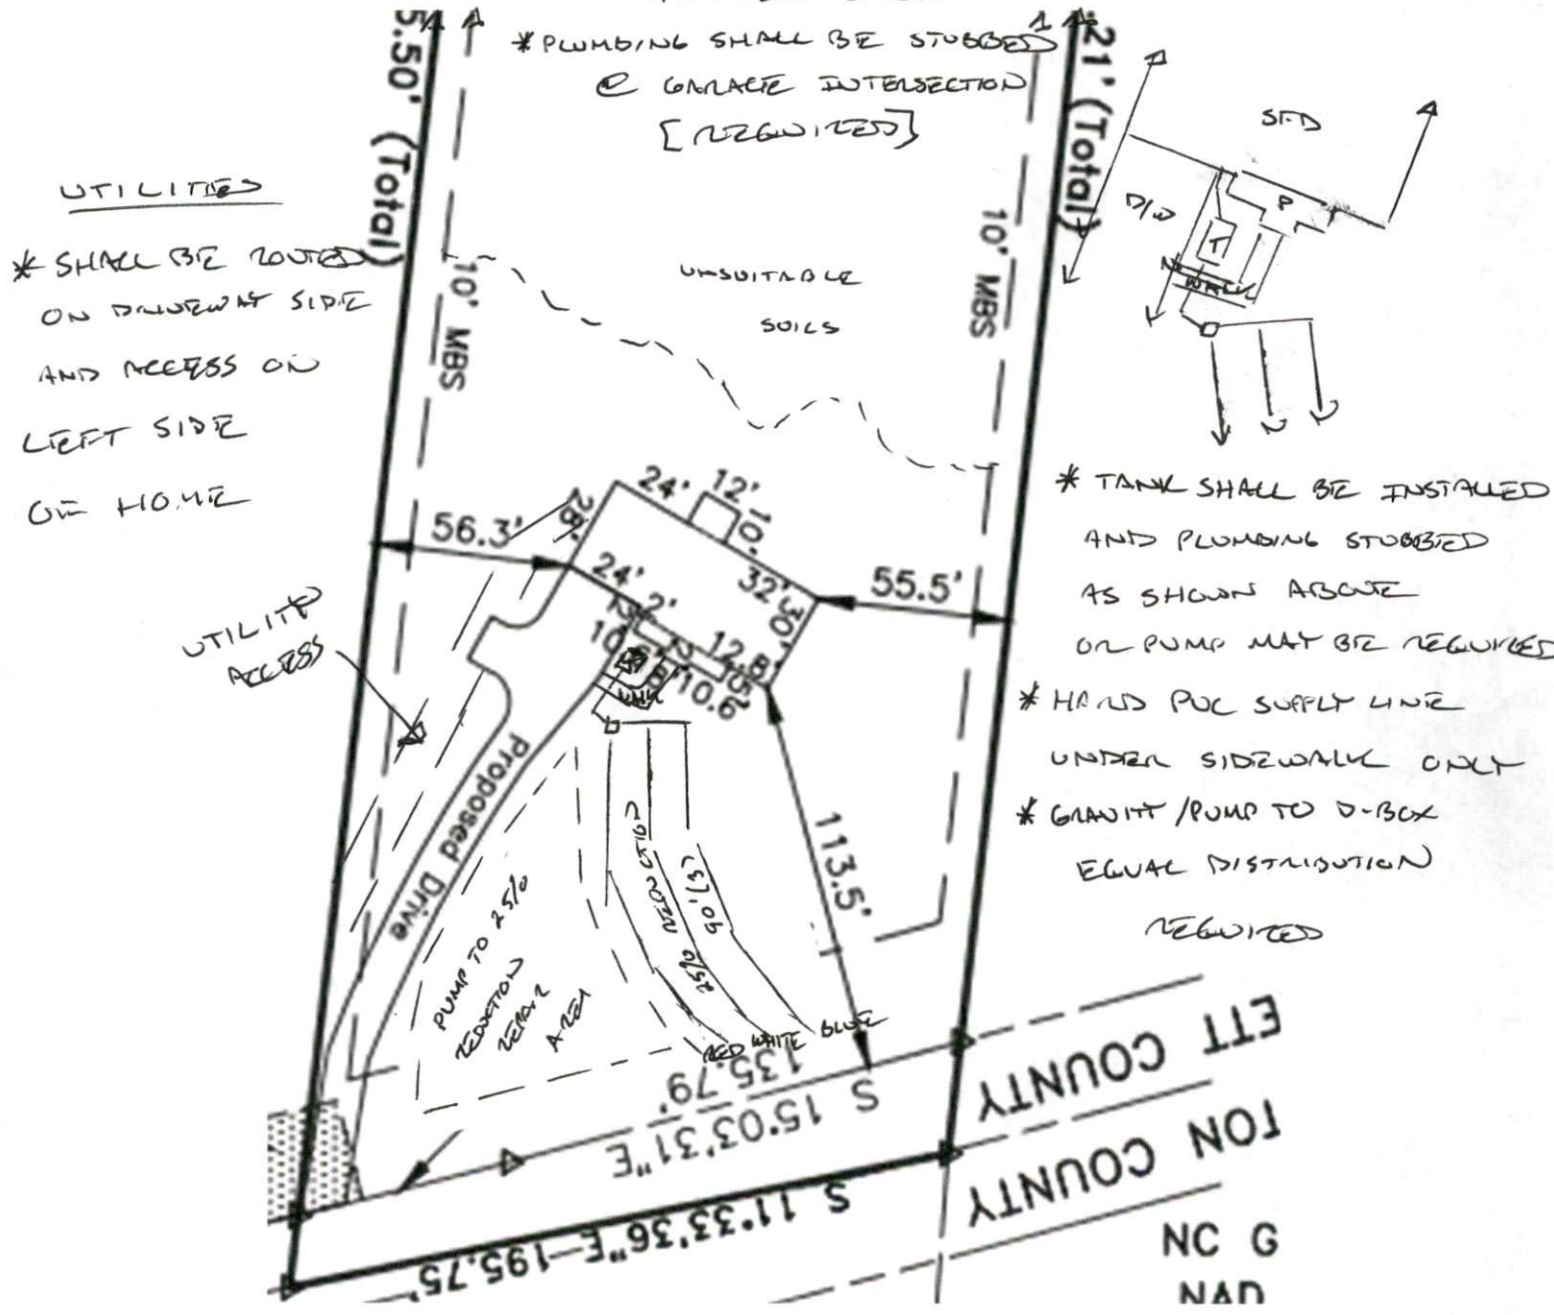 5.50' (Total)
* PLUMBING SHALL BE STUBBED
@ GARAGE INTERSECTION
[REQUIRED]
.21' (Total)
SFD
D/W
P
T
WALK
UTILITIES
* SHALL BE ROUTED
ON DRIVEWAY SIDE
AND ACCESS ON
LEFT SIDE
OF HOME
10' MBS
UNSUITABLE
SOILS
10' MBS
* TANK SHALL BE INSTALLED
AND PLUMBING STUBBED
AS SHOWN ABOVE
OR PUMP MAY BE REQUIRED
* HARD PVC SUPPLY LINE
UNDER SIDEWALK ONLY
* GRAVITY/PUMP TO D-BOX
EQUAL DISTRIBUTION
REQUIRED
24'
12'
10'
28'
56.3'
24'
32'
30'
55.5'
2'
12.8'
10.6'
WALK
UTILITY
ACCESS
Proposed Drive
113.5'
PUMP TO 25%
REDUCTION
REPAIR
AREA
25% REDUCTION
90' (3)
RED WHITE BLUE
135.79'
S 15°03'31"E
S 11°33'36"E-195.75'
ETT COUNTY
TON COUNTY
NC G
NAD